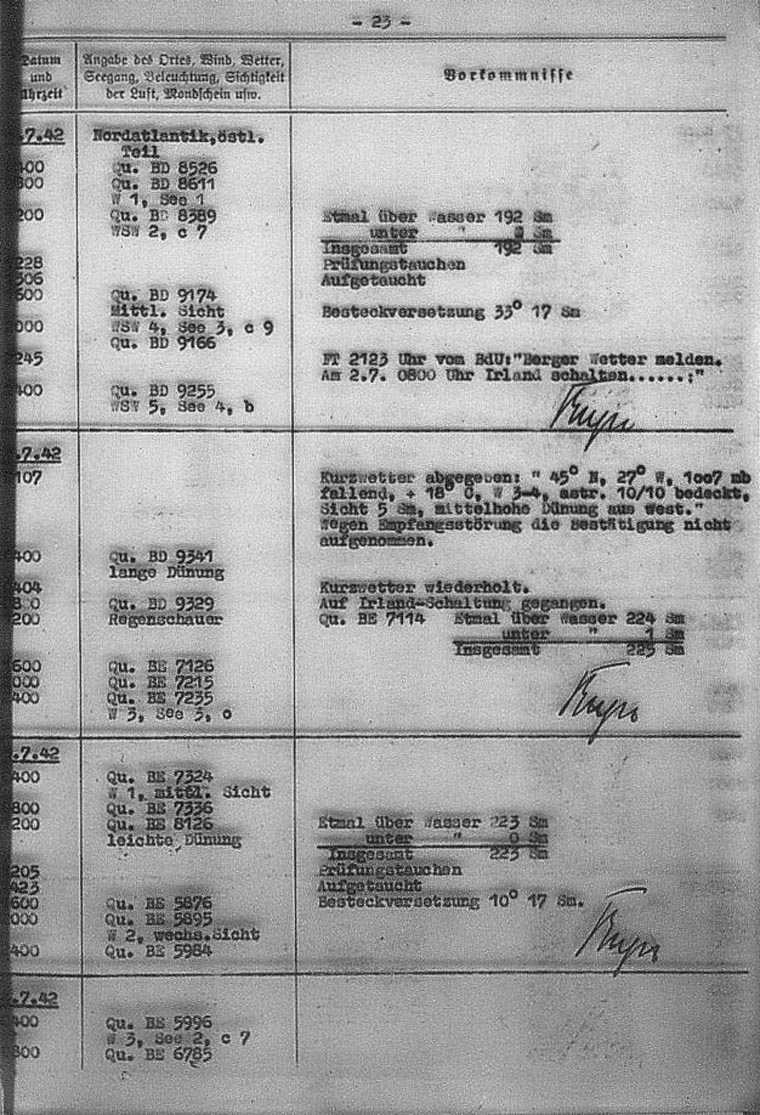 - 23 -
Datum und Uhrzeit
Angabe des Ortes, Wind, Wetter, Seegang, Beleuchtung, Sichtigkeit der Luft, Mondschein usw.
Vorkommnisse
.7.42 Nordatlantik,östl.
Teil
400 Qu. BD 8526
800 Qu. BD 8611
W 1, See 1
200 Qu. BD 8389 Etmal über Wasser 192 Sm
WSW 2, c 7 unter " 0 Sm
Insgesamt 192 Sm
228 Prüfungstauchen
306 Aufgetaucht
600 Qu. BD 9174
Mittl. Sicht Besteckversetzung 33° 17 Sm
WSW 4, See 3, c 9
000 Qu. BD 9166
245 FT 2123 Uhr vom BdU:"Berger Wetter melden.
Am 2.7. 0800 Uhr Irland schalten......;"
400 Qu. BD 9255
WSW 5, See 4, b
.7.42
107 Kurzwetter abgegeben: " 45° N, 27° W, 1007 mb
fallend, + 18° C, W 3-4, astr. 10/10 bedeckt,
Sicht 5 Sm, mittelhohe Dünung aus West."
Wegen Empfangsstörung die Bestätigung nicht
aufgenommen.
400 Qu. BD 9341
lange Dünung
404 Kurzwetter wiederholt.
800 Qu. BD 9329 Auf Irland-Schaltung gegangen.
200 Regenschauer Qu. BE 7114 Etmal über Wasser 224 Sm
unter " 1 Sm
Insgesamt 225 Sm
600 Qu. BE 7126
000 Qu. BE 7215
400 Qu. BE 7235
W 3, See 3, c
.7.42
400 Qu. BE 7324
W 1, mittl. Sicht
800 Qu. BE 7336
200 Qu. BE 8126 Etmal über Wasser 223 Sm
leichte Dünung unter " 0 Sm
Insgesamt 223 Sm
205 Prüfungstauchen
423 Aufgetaucht
600 Qu. BE 5876 Besteckversetzung 10° 17 Sm.
000 Qu. BE 5895
W 2, wechs.Sicht
400 Qu. BE 5984
.7.42
400 Qu. BE 5996
W 3, See 2, c 7
800 Qu. BE 6785